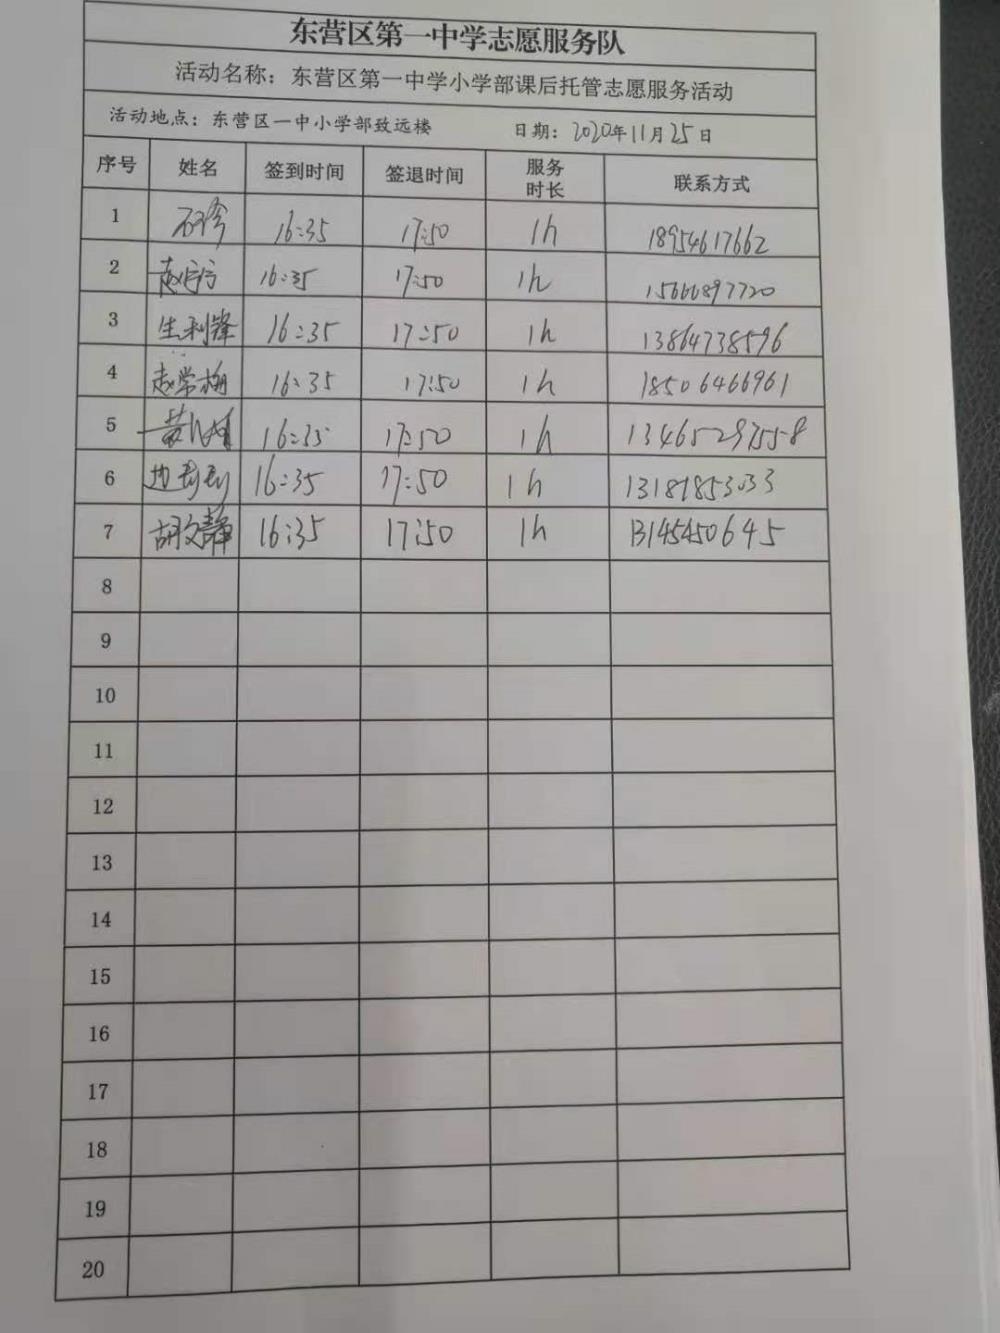 东营区第一中学志愿服务队
活动名称：东营区第一中学小学部课后托管志愿服务活动
活动地点：东营区一中小学部致远楼 日期：2020年11月25日
序号 姓名 签到时间 签退时间 服务时长 联系方式
1 石珍 16:35 17:50 1h 18954617662
2 16:35 17:50 1h 15666897720
3 生利锋 16:35 17:50 1h 13864738596
4 赵常梅 16:35 17:50 1h 18506466961
5 16:35 17:50 1h 13465297558
6 16:35 17:50 1h 13181853033
7 胡文静 16:35 17:50 1h 13145450645
8
9
10
11
12
13
14
15
16
17
18
19
20